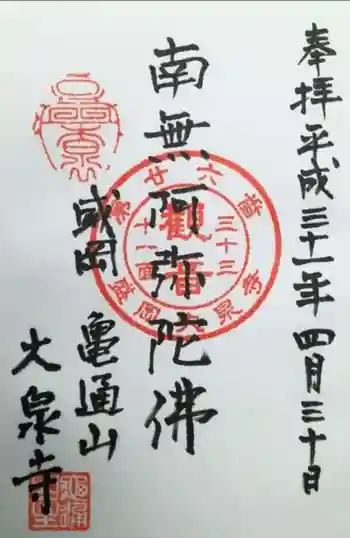 奉拝平成三十一年四月三十日
南無阿弥陀佛
盛岡 亀通山
大泉寺
第廿六番
三十三
観音
十一面
盛岡大泉寺